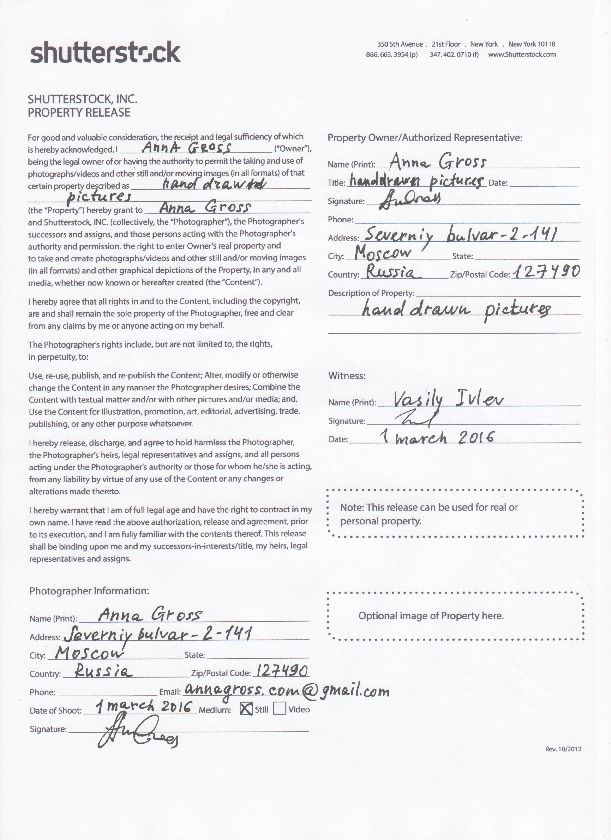 shutterstock
350 5th Avenue . 21st Floor . New York . New York 10118
866.663.3954 (p) 347.402.0710 (f) www.Shutterstock.com
SHUTTERSTOCK, INC.
PROPERTY RELEASE
For good and valuable consideration, the receipt and legal sufficiency of which
is hereby acknowledged, I Anna Gross ("Owner"),
being the legal owner of or having the authority to permit the taking and use of
photographs/videos and other still and/or moving images (in all formats) of that
certain property described as hand drawnd
pictures
(the "Property") hereby grant to Anna Gross
and Shutterstock, INC. (collectively, the "Photographer"), the Photographer's
successors and assigns, and those persons acting with the Photographer's
authority and permission, the right to enter Owner's real property and
to take and create photographs/videos and other still and/or moving images
(in all formats) and other graphical depictions of the Property, in any and all
media, whether now known or hereafter created (the "Content").
I hereby agree that all rights in and to the Content, including the copyright,
are and shall remain the sole property of the Photographer, free and clear
from any claims by me or anyone acting on my behalf.
The Photographer's rights include, but are not limited to, the rights,
in perpetuity, to:
Use, re-use, publish, and re-publish the Content; Alter, modify or otherwise
change the Content in any manner the Photographer desires; Combine the
Content with textual matter and/or with other pictures and/or media; and,
Use the Content for illustration, promotion, art, editorial, advertising, trade,
publishing, or any other purpose whatsoever.
I hereby release, discharge, and agree to hold harmless the Photographer,
the Photographer's heirs, legal representatives and assigns, and all persons
acting under the Photographer's authority or those for whom he/she is acting,
from any liability by virtue of any use of the Content or any changes or
alterations made thereto.
I hereby warrant that I am of full legal age and have the right to contract in my
own name. I have read the above authorization, release and agreement, prior
to its execution, and I am fully familiar with the contents thereof. This release
shall be binding upon me and my successors-in-interests/title, my heirs, legal
representatives and assigns.
Photographer Information:
Name (Print): Anna Gross
Address: Severniy bulvar-2-141
City: Moscow State:
Country: Russia Zip/Postal Code: 127490
Phone: Email: annagross.com@gmail.com
Date of Shoot: 1 march 2016 Medium: Still Video
Signature:
Property Owner/Authorized Representative:
Name (Print): Anna Gross
Title: handdrawn pictures Date:
Signature:
Phone:
Address: Severniy bulvar-2-141
City: Moscow State:
Country: Russia Zip/Postal Code: 127490
Description of Property:
hand drawn pictures
Witness:
Name (Print): Vasily Ivlev
Signature:
Date: 1 march 2016
Note: This release can be used for real or
personal property.
Optional image of Property here.
Rev. 10/2012